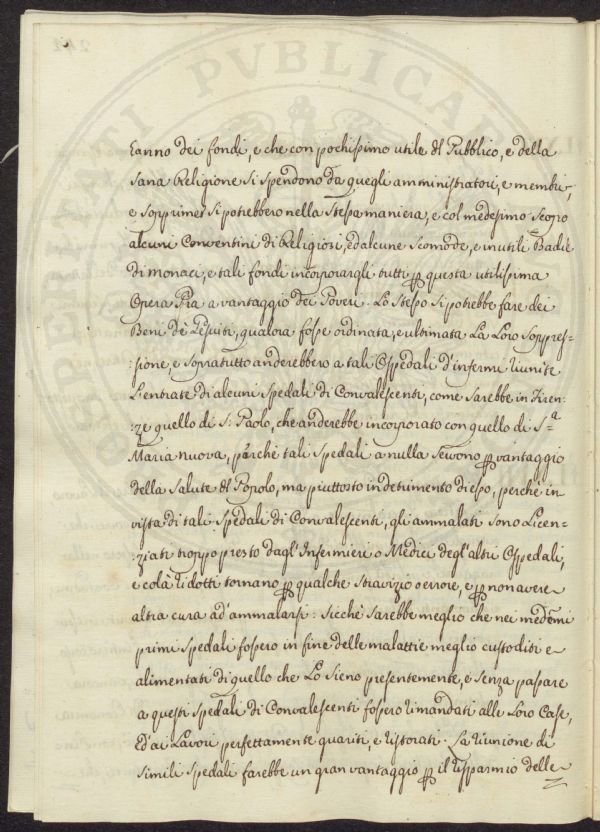 PROSPERITATI PVBLICAE
ẽanno dei fondi, e che con pochissimo utile dl Pubblico, e della
Sana Religione si spendono da quegli amministratori, e membri,
e sopprimer si potrebbero nella stessa maniera, e col medesimo Scopo
alcuni Conventini di Religiosi, ed alcune Scomode, e inutili Badie
di monaci, e tali fondi incorporargli tutti ꝑ questa utilissima
Opera Pia a vantaggio dei Poveri. Lo stesso si potrebbe fare dei
Beni dè Gesuiti, qualora fosse ordinata, e ultimata La Loro Soppres-
:sione, e sopratutto anderebbero a tali Ospedali d'infermi riunite
L'entrate di alcuni Spedali di Convalescenti, come sarebbe in Firen-
:ze quello di S. Paolo, che anderebbe incorporato con quello di S.ª
Maria nuova, perchè tali Spedali a nulla servono ꝑ vantaggio
della Salute dl Popolo, ma piuttosto in detrimento di esso, perchè in
vista di tali Spedali di Convalescenti, gli ammalati sono Licen-
:ziati troppo presto dagl'Infermieri o Medici degl'altri Ospedali,
e colà ridotti tornano ꝑ qualche stravizio o errore, e ꝑ non avere
altra cura ad'ammalarsi: Sicchè sarebbe meglio che nei medẽmi
primi Spedali fossero in fine delle malattie meglio custoditi e
alimentati di quello che Lo sieno presentemente, e senza passare
a questi Spedali di Convalescenti fossero rimandati alle Loro Case,
ed'ai Lavori perfettamente guariti, e ristorati. La riunione di
simili Spedali farebbe un gran vantaggio ꝑ il risparmio delle